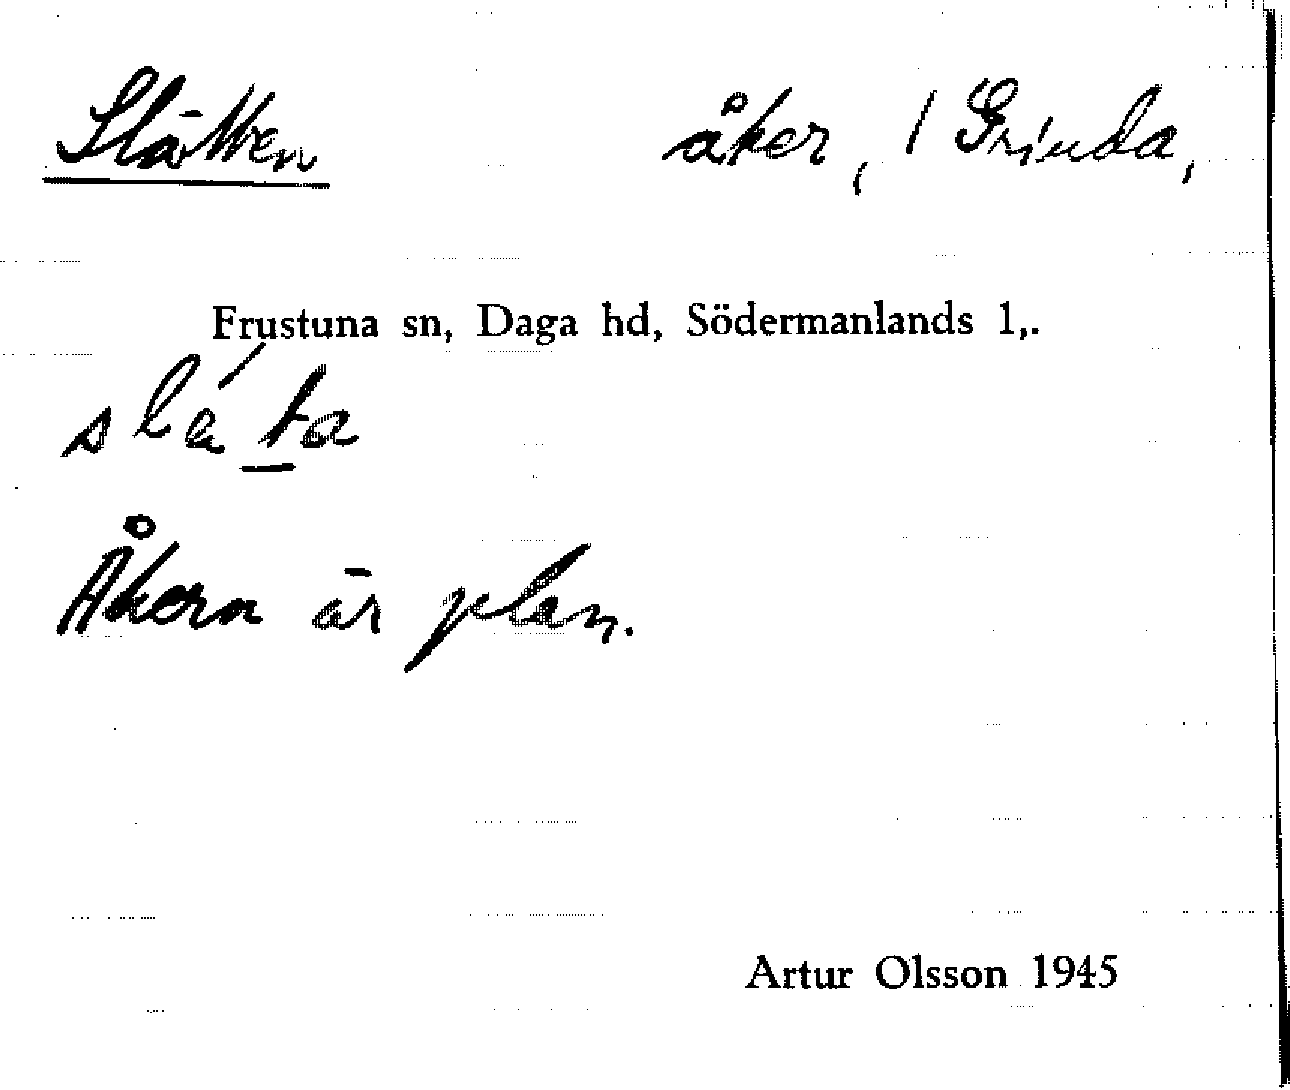 Slätten åker, / Grinda,
Frustuna sn, Daga hd, Södermanlands l,.
slá ta
Åkern är plan.
Artur Olsson 1945